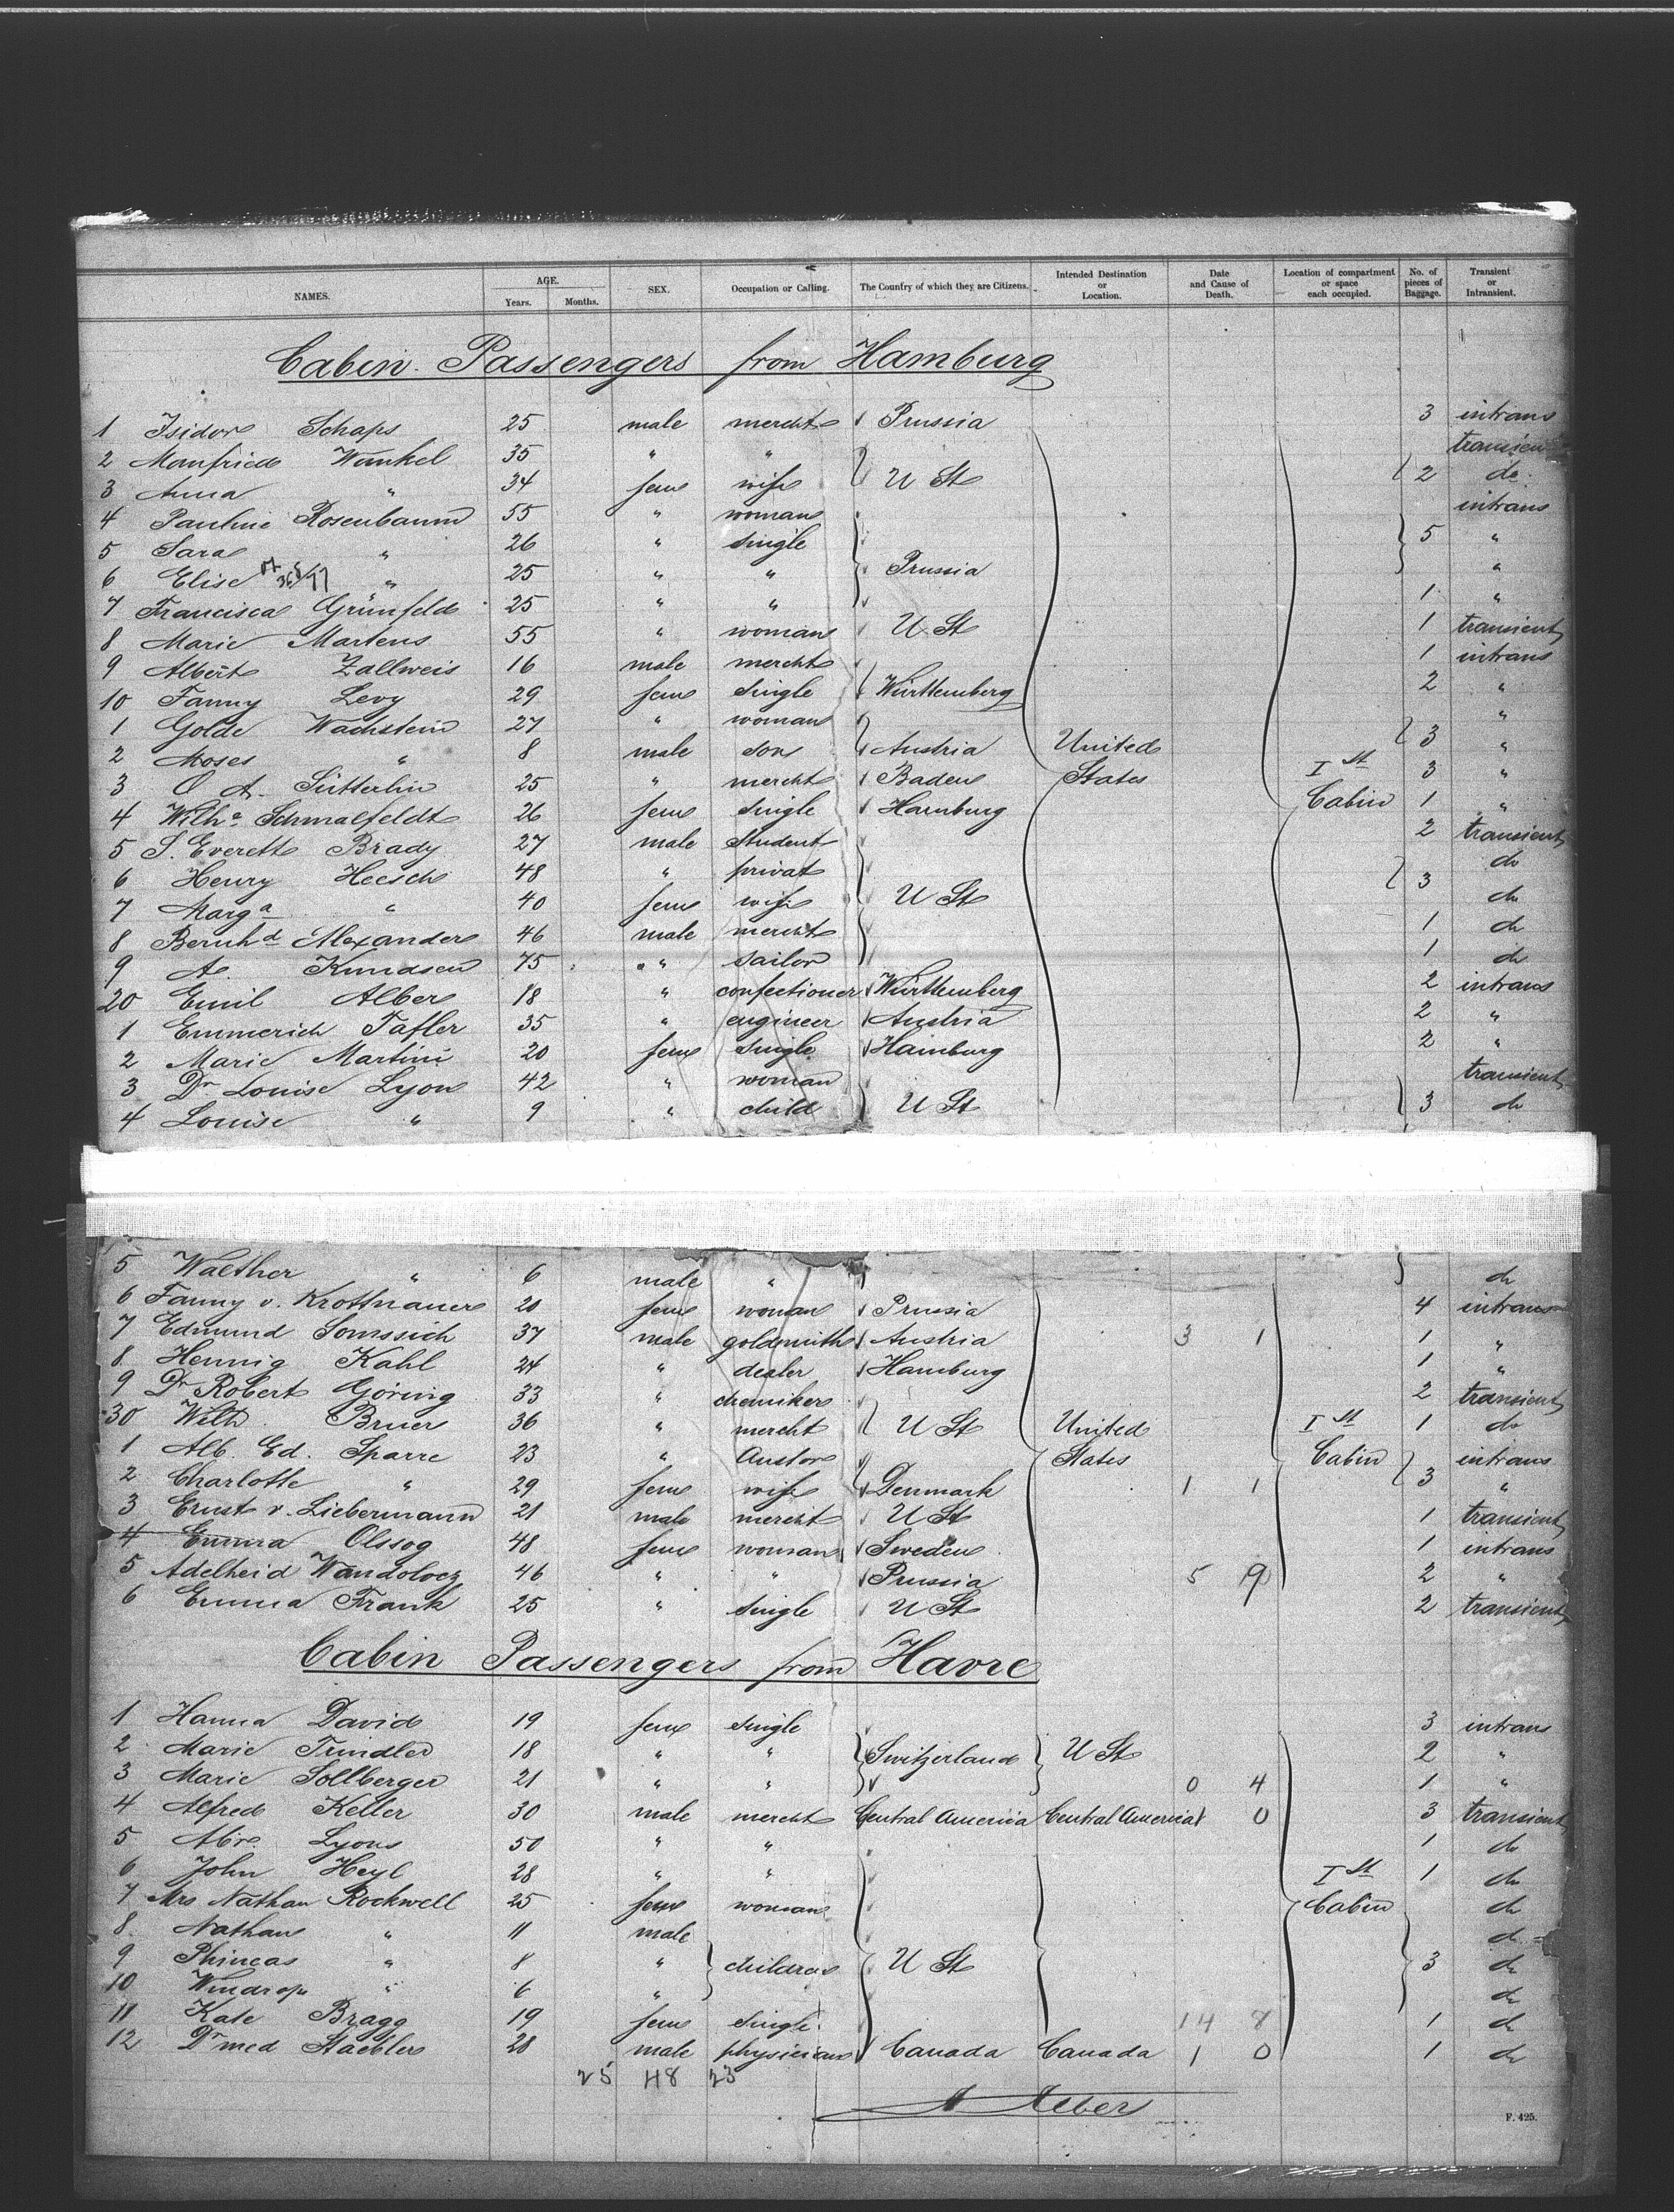 NAMES. AGE. Years. Months. SEX. Occupation or Calling. The Country of which they are Citizens. Intended Destination or Location. Date and Cause of Death. Location of compartment or space each occupied. No. of pieces of Baggage. Transient or Intransient.
Cabin Passengers from Hamburg
1 Isidor Schaps 25 male mercht Prussia 3 intrans
2 Manfried Wunkel 35 " " transient
3 Anna " 34 fem wife U St 2 do
4 Pauline Rosenbaum 55 " woman intrans
5 Sara " 26 " single 5 "
6 Elise " 25 " " Prussia "
7 Francisca Grünfeld 25 " " 1 "
8 Marie Martens 55 " woman U St 1 transient
9 Albert Zallweis 16 male mercht 1 intrans
10 Fanny Levy 29 fem single Württemberg 2 "
1 Golde Wachstein 27 " woman "
2 Moses " 8 male son Austria United 3 "
3 O A. Sütterlin 25 " mercht Baden States I St 3 "
4 Wilha Schmalfeldt 26 fem single Hamburg Cabin 1 "
5 S. Everett Brady 27 male student 2 transient
6 Henry Heesch 48 " privat 3 do
7 Marga " 40 fem wife U St do
8 Bernhd Alexander 46 male mercht 1 do
9 A. Knudsen 75 " sailor 1 do
20 Emil Alber 18 " confectioner Württemberg 2 intrans
1 Emmerich Tafler 35 " engineer Austria 2 "
2 Marie Martini 20 fem single Hamburg 2 "
3 Dr Louise Lyon 42 " woman transient
4 Louise " 9 " child U St 3 do
5 Walther " 6 male " do
6 Fanny v. Krottnauer 20 fem woman Prussia 4 intrans
7 Edmund Somssich 37 male goldsmith Austria 3 1 1 "
8 Hennig Kahl 24 " dealer Hamburg 1 "
9 Dr Robert Göring 33 " chemiker 2 transient
30 Wilh. Bruer 36 " mercht U St United I St 1 do
1 Alb. Ed. Sparre 23 " States Cabin intrans
2 Charlotte " 29 fem wife Denmark 1 1 3 "
3 Ernst v. Liebermann 21 male mercht U St 1 transient
4 Emma Olssog 48 fem woman Sweden 1 intrans
5 Adelheid 46 " " Prussia 5 9 2 "
6 Emma Frank 25 " single U St 2 transient
Cabin Passengers from Havre
1 Hanna David 19 fem single 3 intrans
2 Marie Trindler 18 " " Switzerland U St 2 "
3 Marie Sollberger 21 " " 0 4 1 "
4 Alfred Keller 30 male mercht Central America Central America 1 0 3 transient
5 Abr. Lyons 50 " " 1 do
6 John Heyl 28 " " I St 1 do
7 Mrs Nathan Rockwell 25 fem woman Cabin do
8 Nathan " 11 male do
9 Phineas " 8 " children U St 3 do
10 Windrop " 6 " do
11 Kate Bragg 19 fem single 14 8 1 do
12 Dr med Staebler 28 male physician Canada Canada 1 0 1 do
25 48 23
Alber
F. 425.